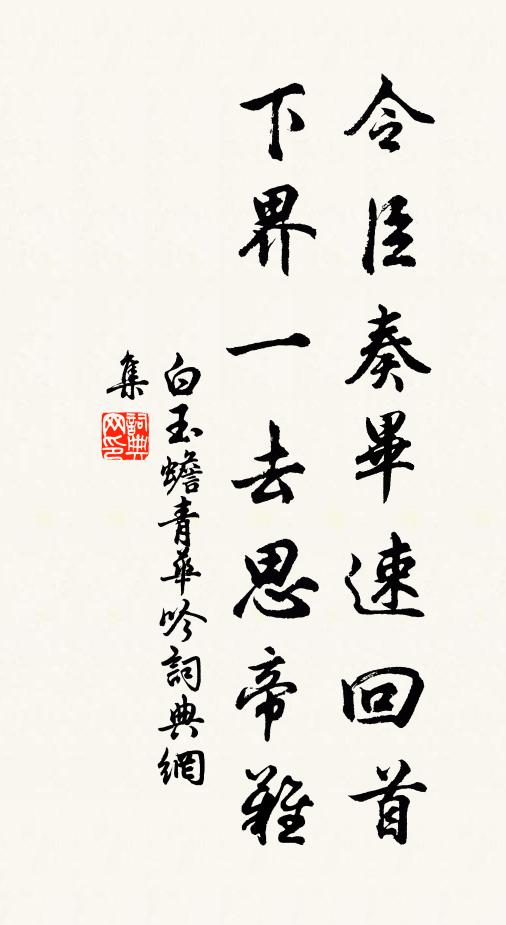 令臣奏畢速回首
下界一去思帝難
白玉蟾青華吟詞典網
集
詞典
网印